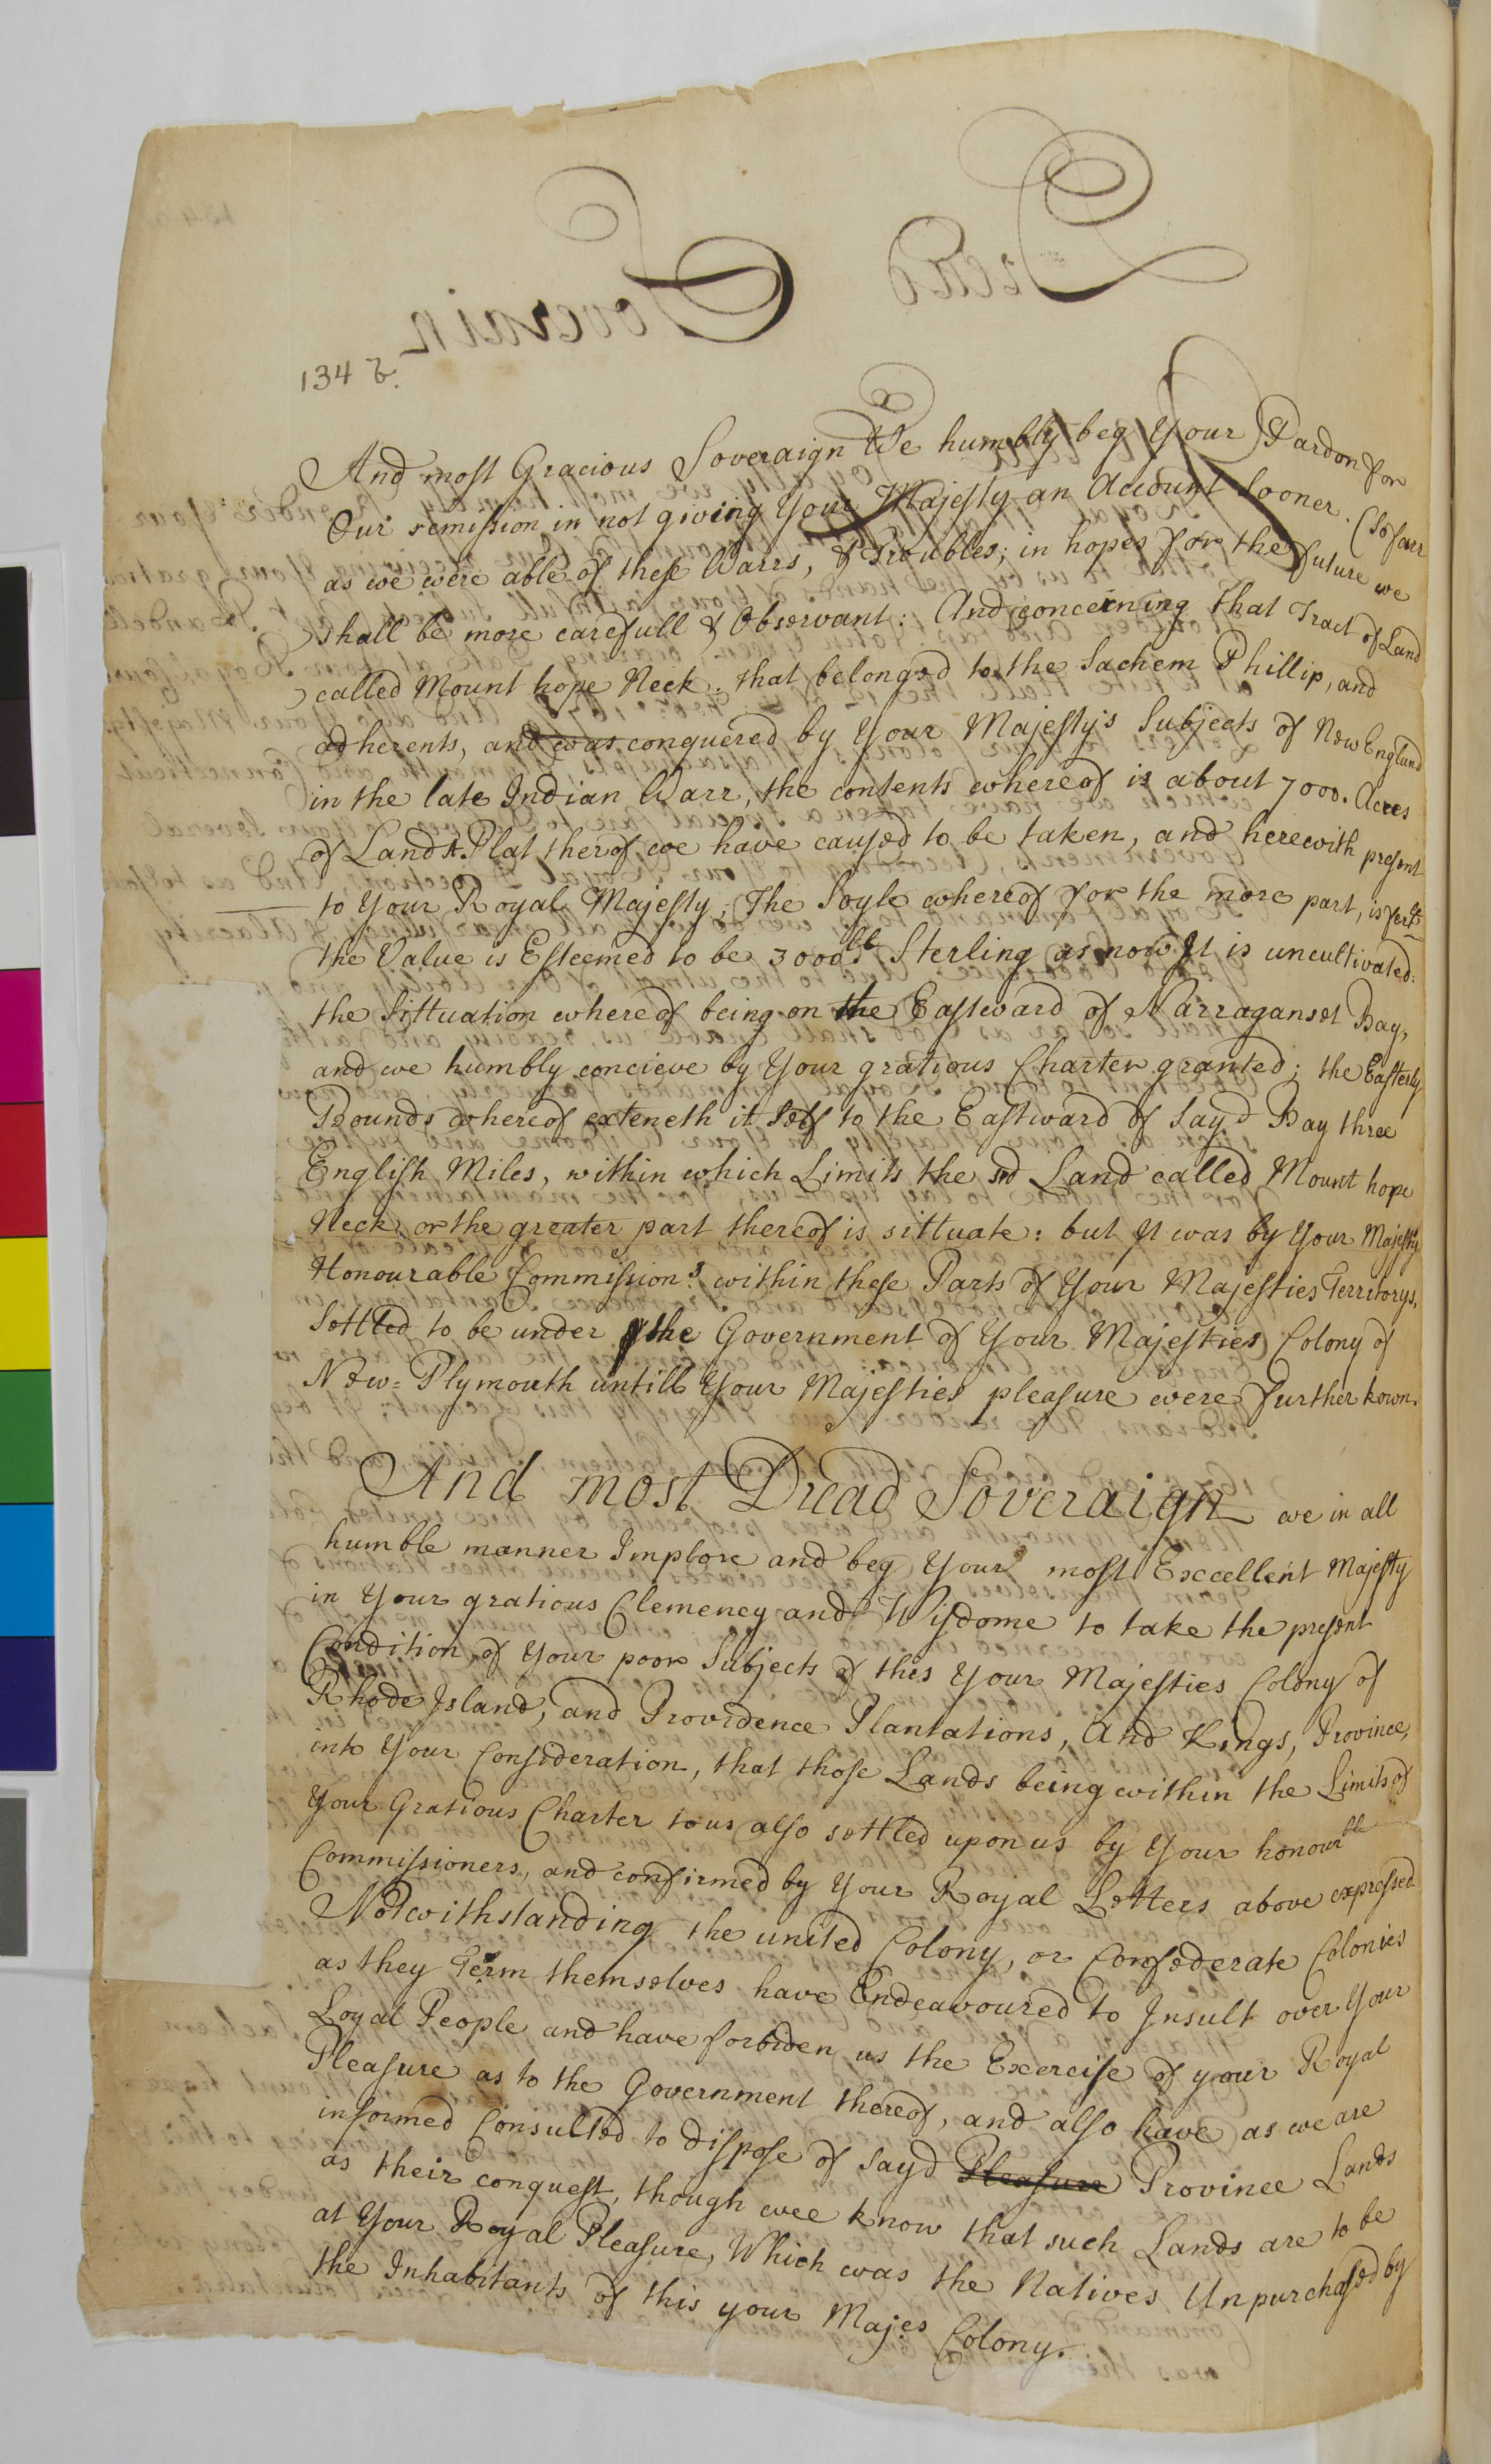 Dread
Soverain
134 b.
And most Gracious Soveraign We humbly beg Your Pardon for
Our remission in not giving Your Majesty an Account sooner. (so farr
as we were able of these Warrs, & Troubles; in hopes for the future we
shall be more carefull & Observant: And concerning that Tract of Land
called Mount hope Neck. that belonged to the Sachem Phillip, and
adherents, and was conquered by Your Majesty's Subjects of New England
in the late Indian Warr, the contents whereof is about 7000. Acres
of Land A. Plat therof we have caused to be taken, and herewith present
to Your Royal Majesty; The Soyle whereof for the more part, is
the Value is Esteemed to be 3000lb Sterling as now It is uncultivated:
the Sittuation whereof being on the Eastward of Narraganset Bay,
and we humbly concieve by Your gratious Charter granted; the Easterly
Bounds whereof exteneth it Self to the Eastward of Sayd Bay three
English Miles, within which Limits the sd Land called Mount hope
Neck, or the greater part thereof is sittuate: but It was by Your Majesty
Honourable Commission.s within these Parts of Your Majesties Territorys.
Settled to be under the Government of Your Majesties Colony of
New=Plymouth untill Your Majesties pleasure were further kown.
And most Dread Soveraign we in all
humble manner Implore and beg Your most Excellent Majesty
in Your gratious Clemency and Wisdome to take the present
Condition of Your poor Subjects of this Your Majesties Colony of
Rhode Island, and Providence Plantations, And Kings, Province,
into Your Consideration, that those Lands being within the Limits of
Your Gratious Charter to us also settled upon us by Your honourble
Commissioners, and confirmed by Your Royal Letters above expressed
Notwithstanding the united Colony, or Confederate Colonies
as they Term themselves have Endeavoured to Insult over Your
Loyal People and have forbiden us the Exercise of your Royal
Pleasure as to the Government thereof, and also have as we are
informed Consulted to dispose of sayd Pleasure Province Lands
as their conquest, though wee know that such Lands are to be
at Your Royal Pleasure, Which was the Natives Unpurchased by
the Inhabitants of this your Majes Colony.